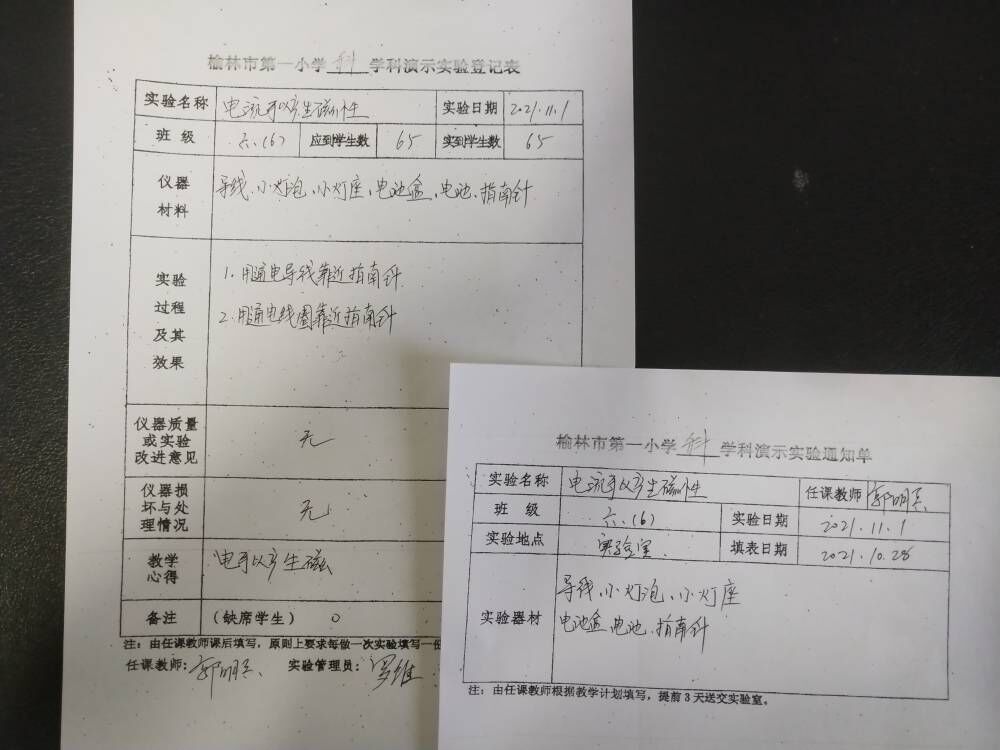 榆林市第一小学 科 学科演示实验登记表
实验名称 电流可以产生磁性 实验日期 2021.11.1
班 级 六.(6) 应到学生数 65 实到学生数 65
仪器 导线、小灯泡、小灯座、电池盒、电池、指南针
材料
实验 1.用通电导线靠近指南针
过程 2.用通电线圈靠近指南针
及其
效果
仪器质量
或实验 无
改进意见
仪器损
坏与处 无
理情况
教学 电可以产生磁
心得
备注 (缺席学生) 0
注:由任课教师课后填写,原则上要求每做一次实验填写一份
任课教师: 郭明 实验管理员: 罗维
榆林市第一小学 科 学科演示实验通知单
实验名称 电流可以产生磁性 任课教师 郭明
班 级 六.(6) 实验日期 2021.11.1
实验地点 实验室 填表日期 2021.10.28
实验器材 导线、小灯泡、小灯座
电池盒、电池、指南针
注:由任课教师根据教学计划填写,提前3天送交实验室。